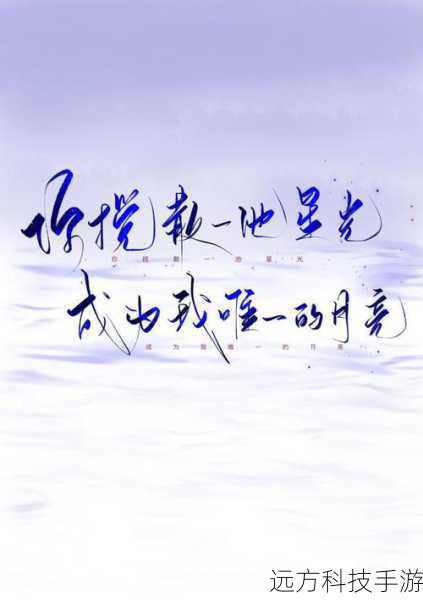 你搅散一池星光
你搅散一池星光
成为我唯一的月亮
成为我唯一的月亮
远方科技手游